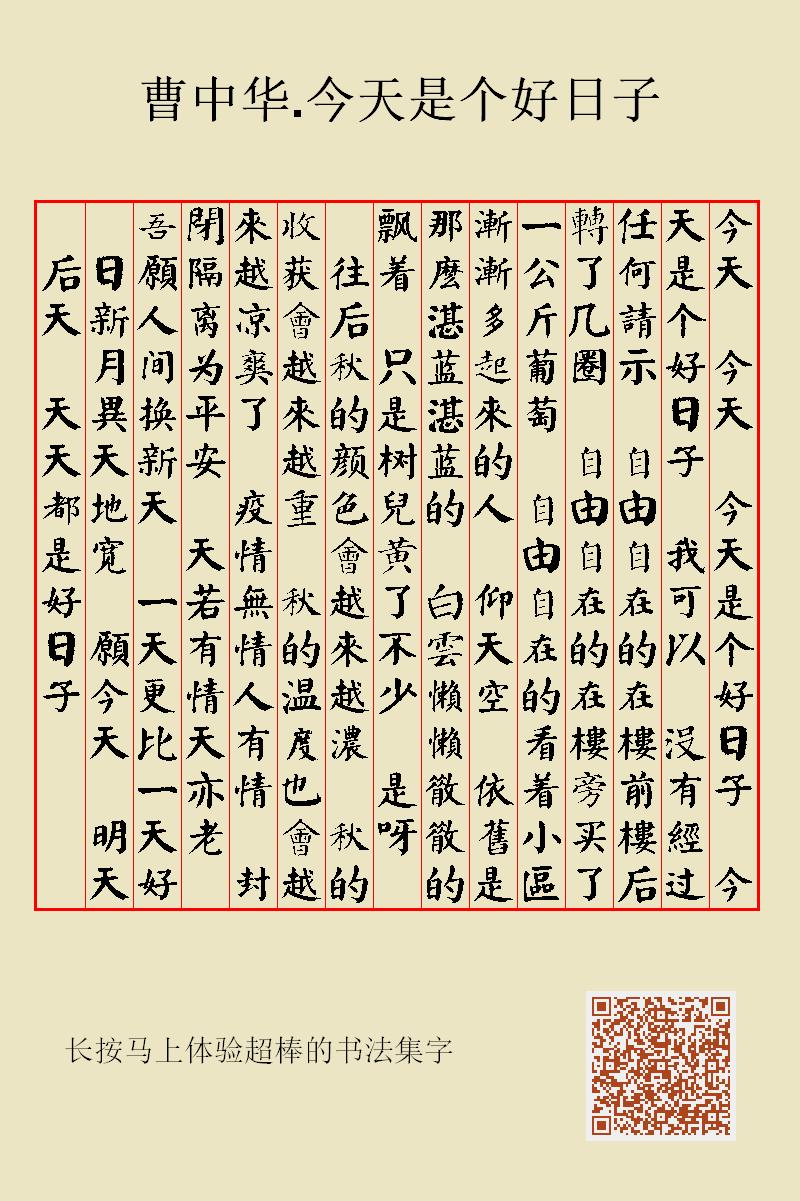 曹中华.今天是个好日子
今天 今天 今天是个好日子 今
天是个好日子 我可以 没有經过
任何請示 自由自在的在樓前樓后
轉了几圈 自由自在的在樓旁买了
一公斤葡萄 自由自在的看着小區
漸漸多起來的人 仰天空 依舊是
那麼湛蓝湛蓝的 白雲懒懒散散的
飘着 只是树兒黄了不少 是呀
往后秋的颜色會越來越濃 秋的
收获會越來越重 秋的温度也會越
來越凉爽了 疫情無情人有情 封
閉隔离为平安 天若有情天亦老
吾願人间换新天 一天更比一天好
日新月異天地宽 願今天 明天
后天 天天都是好日子
长按马上体验超棒的书法集字